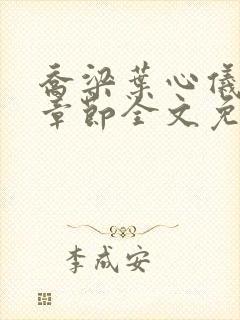 乔梁葉心儀
章節全文免
李成安